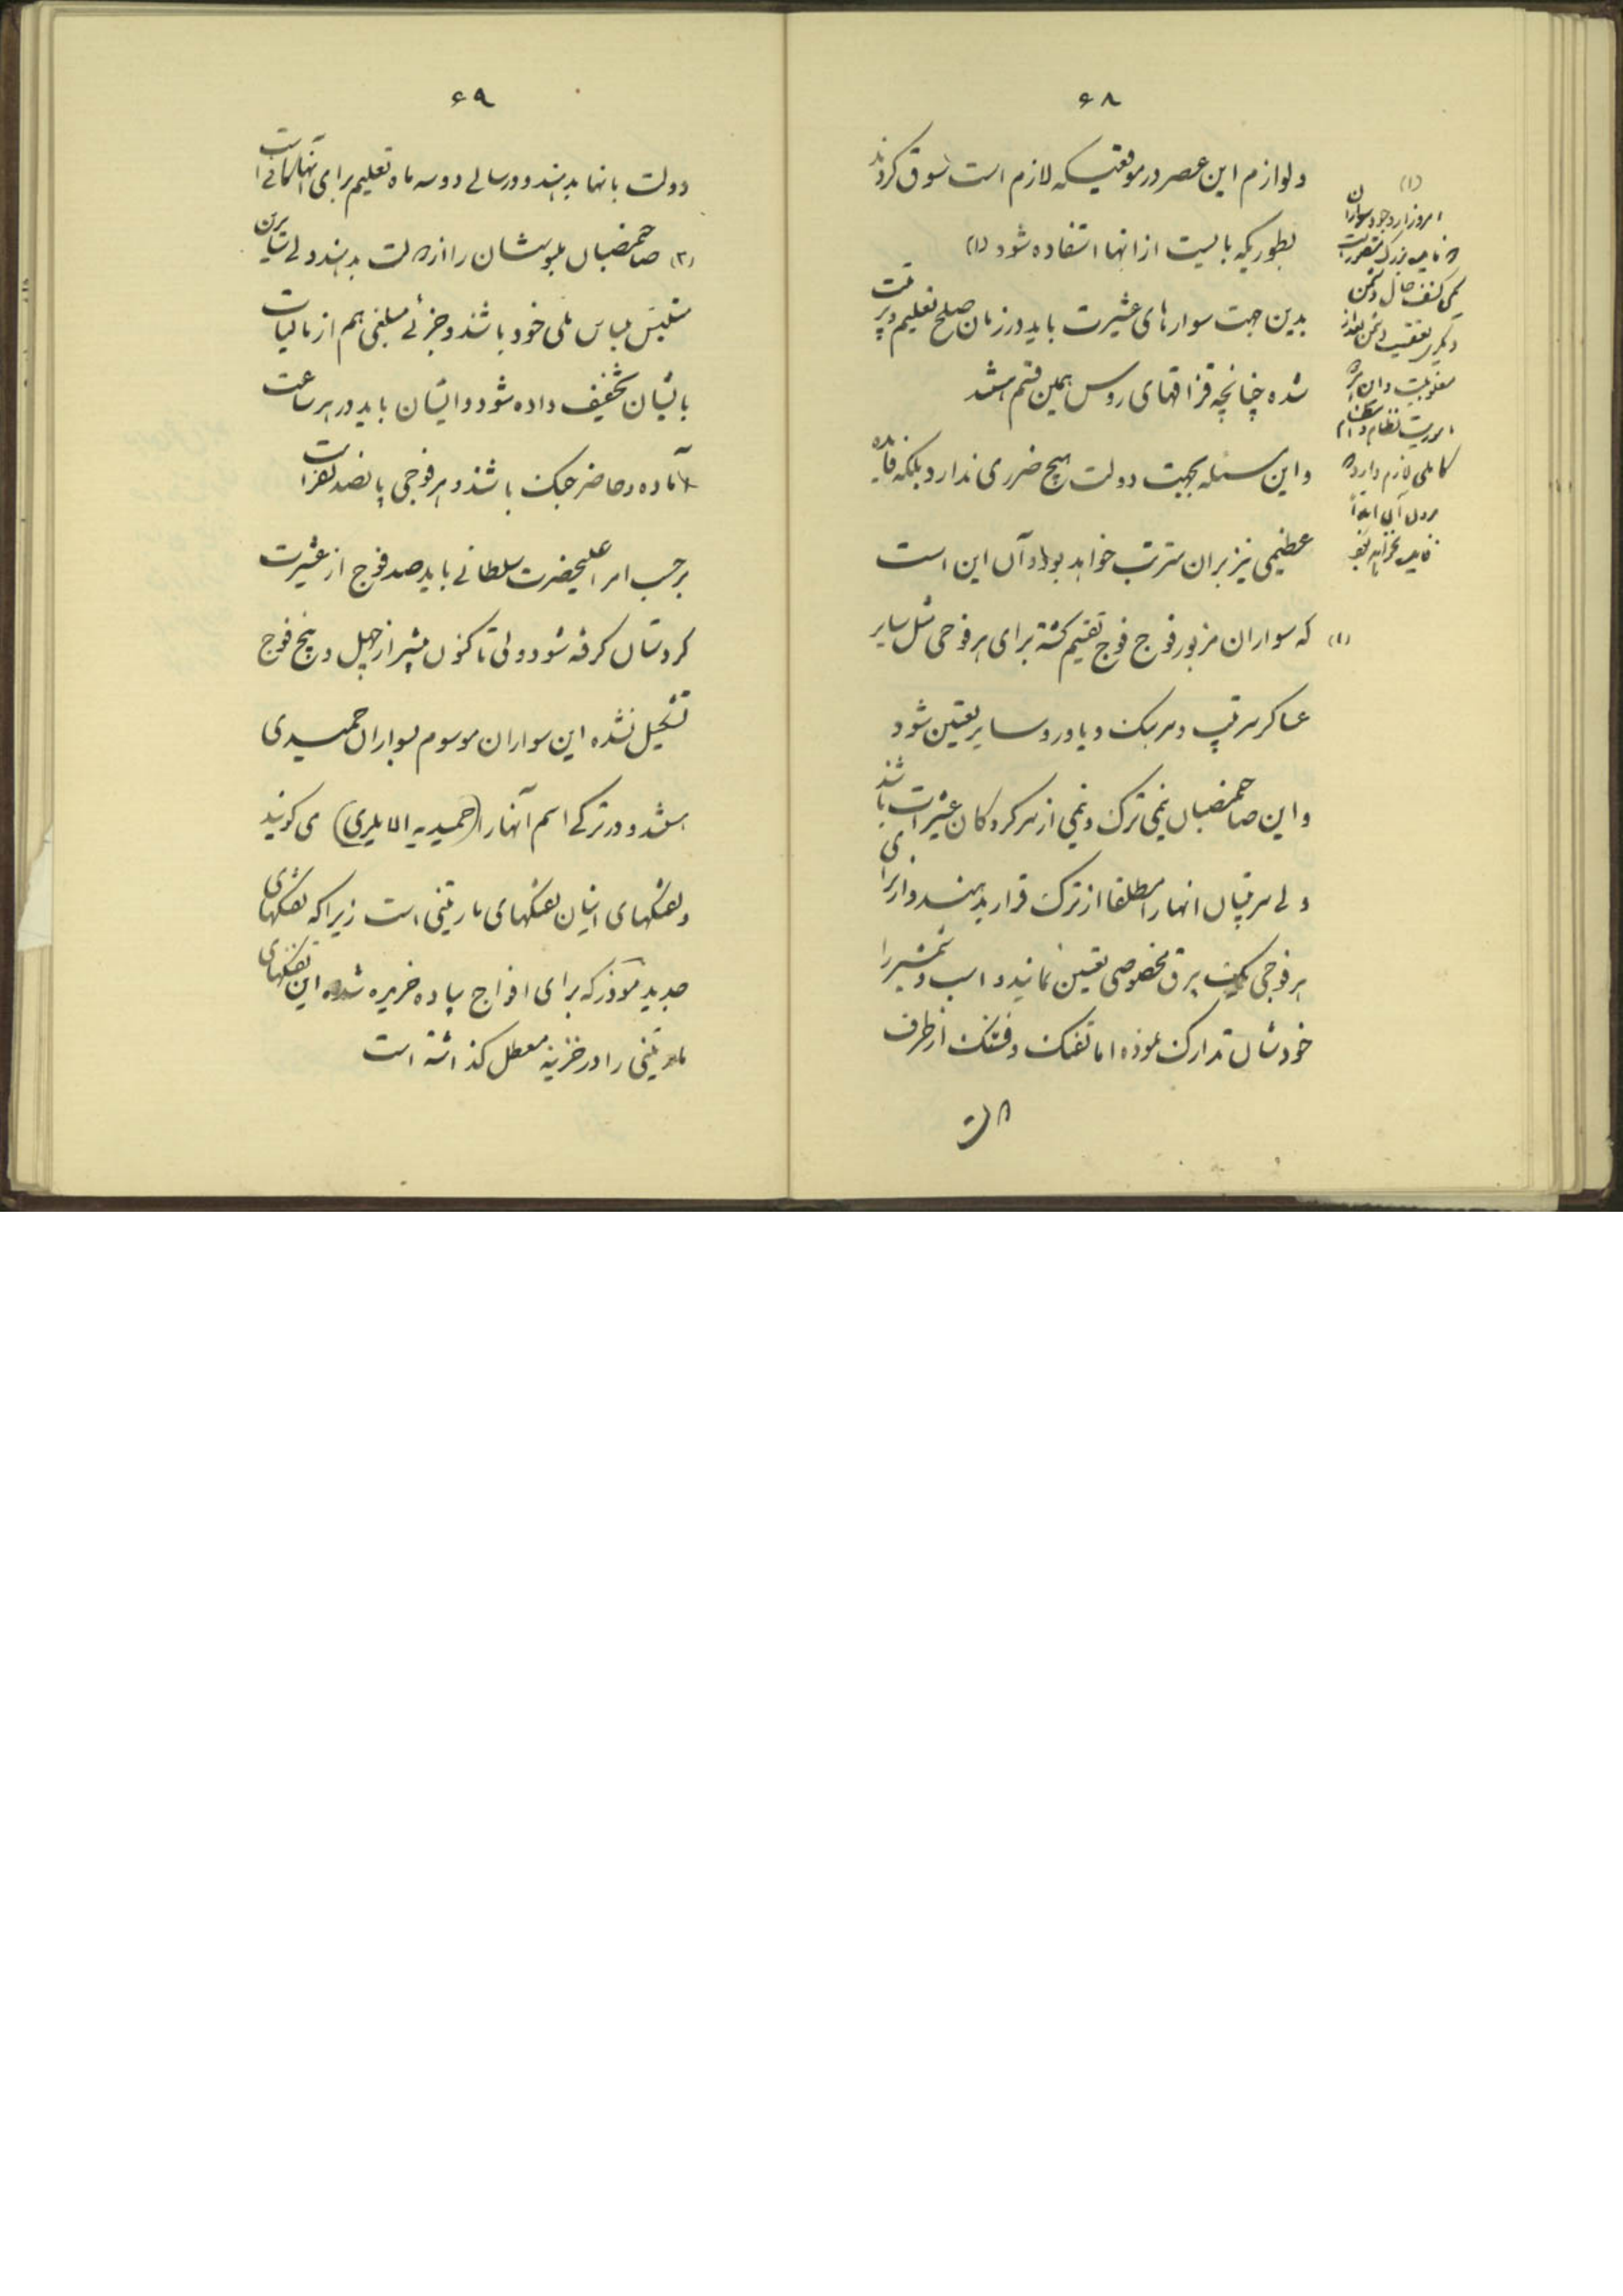 ۶۸
ولوازم این عصر در موقعیکه لازم است سوق کردند
بطوریکه بایست از انها استفاده شود (۱)
بدین جهت سوارهای عشیرت باید در زمان صلح تعلیم و تربیت
شده چنانچه قزاقهای روس همین قسم هستند
و این مسئله بجهت دولت هیچ ضرری ندارد بلکه فایده
عظیمی نیز بران مترتب خواهد بود و آن این است
(۱) که سواران مزبور فوج فوج تقسیم گشته برای هر فوجی مثل سایر
عساکر سرتیپ و سرهنگ و یاور و سایر تعیین شود
و این صاحبمنصبان نیمی ترک و نیمی از سرکردگان عشیرات باشند
ولی سرتیپان انها را مطلقا از ترک قرار بدهند و از برای
هر فوجی یک بیرق مخصوصی تعیین نمایند و اسب و شمشیر را
خودشان تدارک نموده اما تفنک و فشنک از طرف
دولت
(۱)
امروز از وجود سواران
دو فایده بزرگ متصور است
یکی کشف حال دشمن
دیگری تعقیب دشمن بعد از
مغلوبیت و این هر دو
ماموریت نظام و انتظام
کاملی لازم دارد که
بدون آن ابداً
فایده نخواهد بخشید
۶۹
دولت بانها بدهند و در سالی دو سه ماه تعلیم برای انها کافی است
(۲) صاحبمنصبان ملبوسشان را از دولت بدهند ولی سایرین
متلبس بلباس ملی خود باشند و جزئی مبلغی هم از مالیات
بایشان تخفیف داده شود و ایشان باید در هر ساعت
آماده و حاضر جنک باشند و هر فوجی پانصد نفر است
برحسب امر اعلیحضرت سلطانی باید صد فوج از عشیرت
کردستان گرفته شود ولی تا کنون بیشتر از چهل و پنج فوج
تشکیل نشده این سواران موسوم بسواران حمیدی
هستند و در ترکی اسم آنها را (حمیدیه الایلری) می گویند
و تفنگهای ایشان تفنگهای مارتینی است زیرا که تفنگهای
جدید موذر که برای افواج پیاده خریده شده این تفنگهای
مارتینی را در خزینه معطل گذاشته است